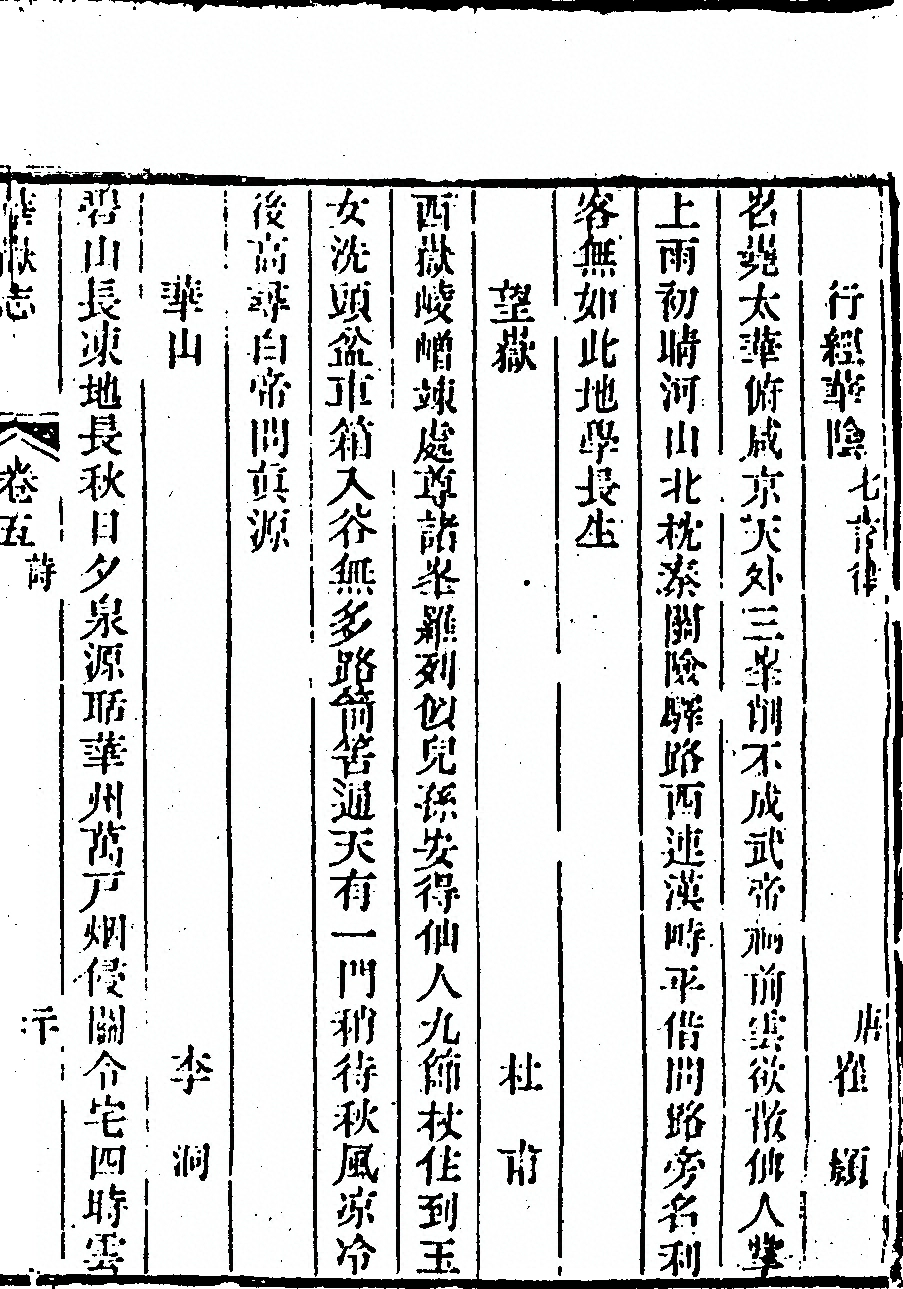 行經華陰 七言律 唐 崔顥
岧嶤太華俯咸京天外三峯削不成武帝祠前雲欲散仙人掌
上雨初晴河山北枕秦關險驛路西連漢畤平借問路旁名利
客無如此地學長生
望嶽 杜甫
西嶽崚嶒竦處尊諸峯羅列似兒孫安得仙人九節杖住到玉
女洗頭盆車箱入谷無多路箭筈通天有一門稍待秋風凉冷
後高尋白帝問眞源
華山 李洞
碧山長凍地長秋日夕泉源聒華州萬戸烟侵關令宅四時雲
華嶽志 卷五 詩